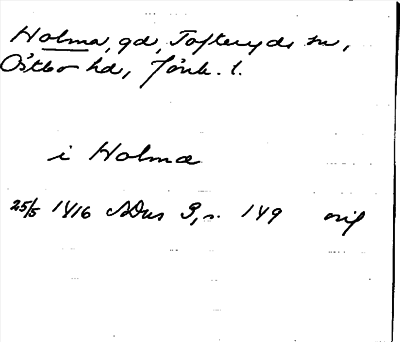 Holma, gd, Tofteryds sn,
Östbo hd, Jönk. l.
i Holma
25/5 1416 SDns 3, s. 149 orig